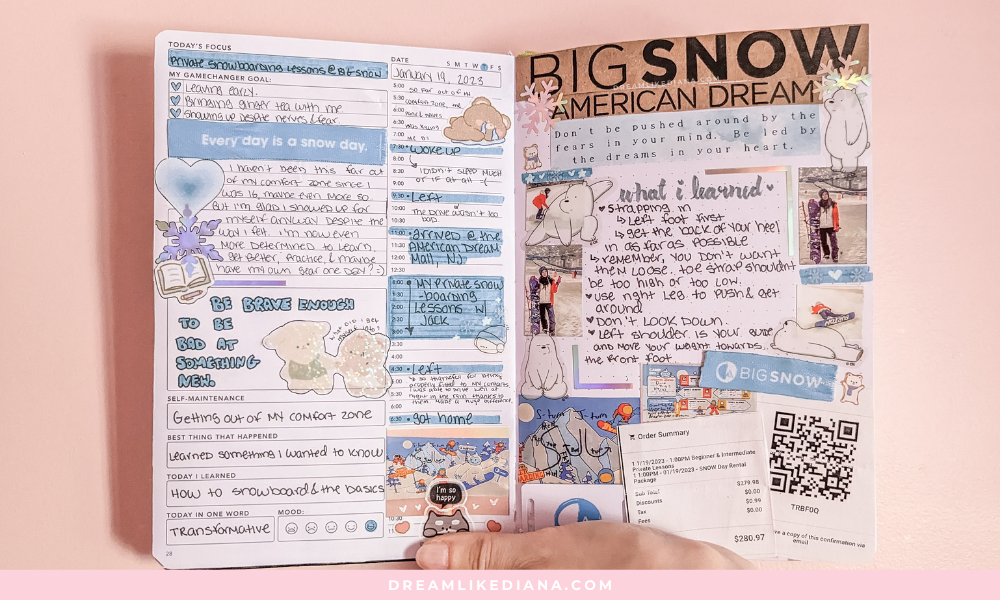 TODAY'S FOCUS
Private snowboarding lessons @ BIG SNOW
MY GAMECHANGER GOAL:
Leaving early.
Bringing ginger tea with me
Showing up despite nerves & fear.
Every day is a snow day.
I haven't been this far out
of my comfort zone since I
was 16, maybe even more so.
But I'm glad I showed up for
myself anyway despite the
way I felt. I'm now even
more determined to learn,
get better, practice, & maybe
have my own gear one DAY? :)
BE BRAVE ENOUGH
TO BE
BAD AT
SOMETHING
NEW.
WHAT DID I GET
MYSELF INTO?
SELF-MAINTENANCE
Getting out of my comfort zone
BEST THING THAT HAPPENED
Learned something I wanted to know
TODAY I LEARNED
How to snowboard & the basics
TODAY IN ONE WORD
Transformative
MOOD:
28
DATE
S M T W T F S
January 19, 2023
5:00
so far out of my
5:30
comfort zone,
6:00
6:30
7:00
7:30
woke up
8:00
8:30
I didn't sleep much
9:00
or if at all :(
9:30
Left
10:00
The drive wasn't too
10:30
bad.
11:00
arrived @ the
11:30
American Dream
12:00
Mall, NJ
12:30
My private snow
-boarding
2:00
Lessons w/
Jack
3:00
3:30
4:00
4:30
Left
so thankful for being
properly fitted to my contacts
I was able to drive well at
night in the rain thanks to
them. Made a huge difference.
6:00
6:30
got home
I'm so
happy
10:30
BIG SNOW
AMERICAN DREAM
DREAMLIKEDIANA.COM
Don't be pushed around by the
fears in your mind. Be led by
the dreams in your heart.
what i learned
strapping in
Left foot first
get the back of your heel
in as far as possible
remember, you don't want
them loose.. toe strap shouldn't
be too high or too low.
use right leg to push & get
around
Don't look down.
Left shoulder is your guide
and move your weight towards..
the front foot
BIGSNOW
S-turn
J-turn
Order Summary
1 1/19/2023 - 1:00PM Beginner & Intermediate
Private Lessons
1 1:00PM - 01/19/2023 - SNOW Day Rental
Package
$279.98
Sub Total
$0.00
Discounts
$0.99
Tax
$0.00
Fees
$280.97
TRBF0Q
ve a copy of this confirmation via
email
DREAMLIKEDIANA.COM